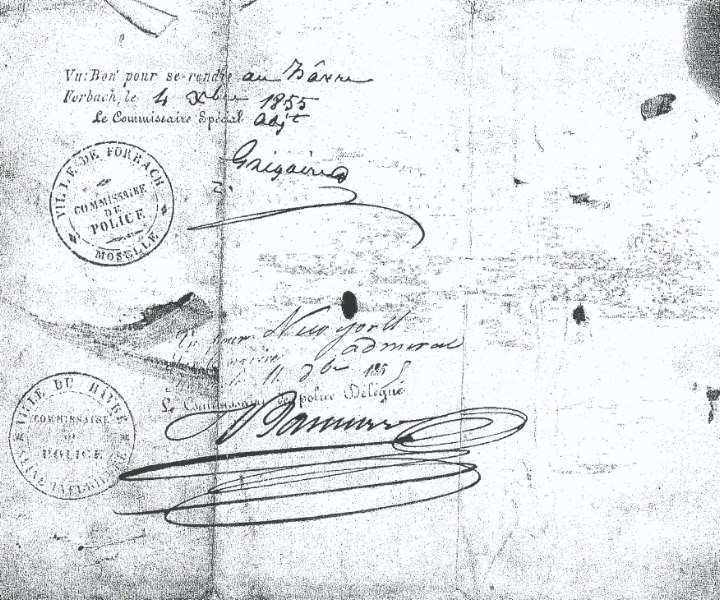 Vu: Bon pour se rendre au Hâvre
Forbach, le 4 Xbre 1855
Le Commissaire Spécial Adjt
VILLE DE FORBACH
COMMISSAIRE
DE
POLICE
MOSELLE
New york
admiral
le 11 Xbre 1855
Le Commissaire de police Délégué
VILLE DU HÂVRE
COMMISSAIRE
DE
POLICE
SEINE INFERIEURE